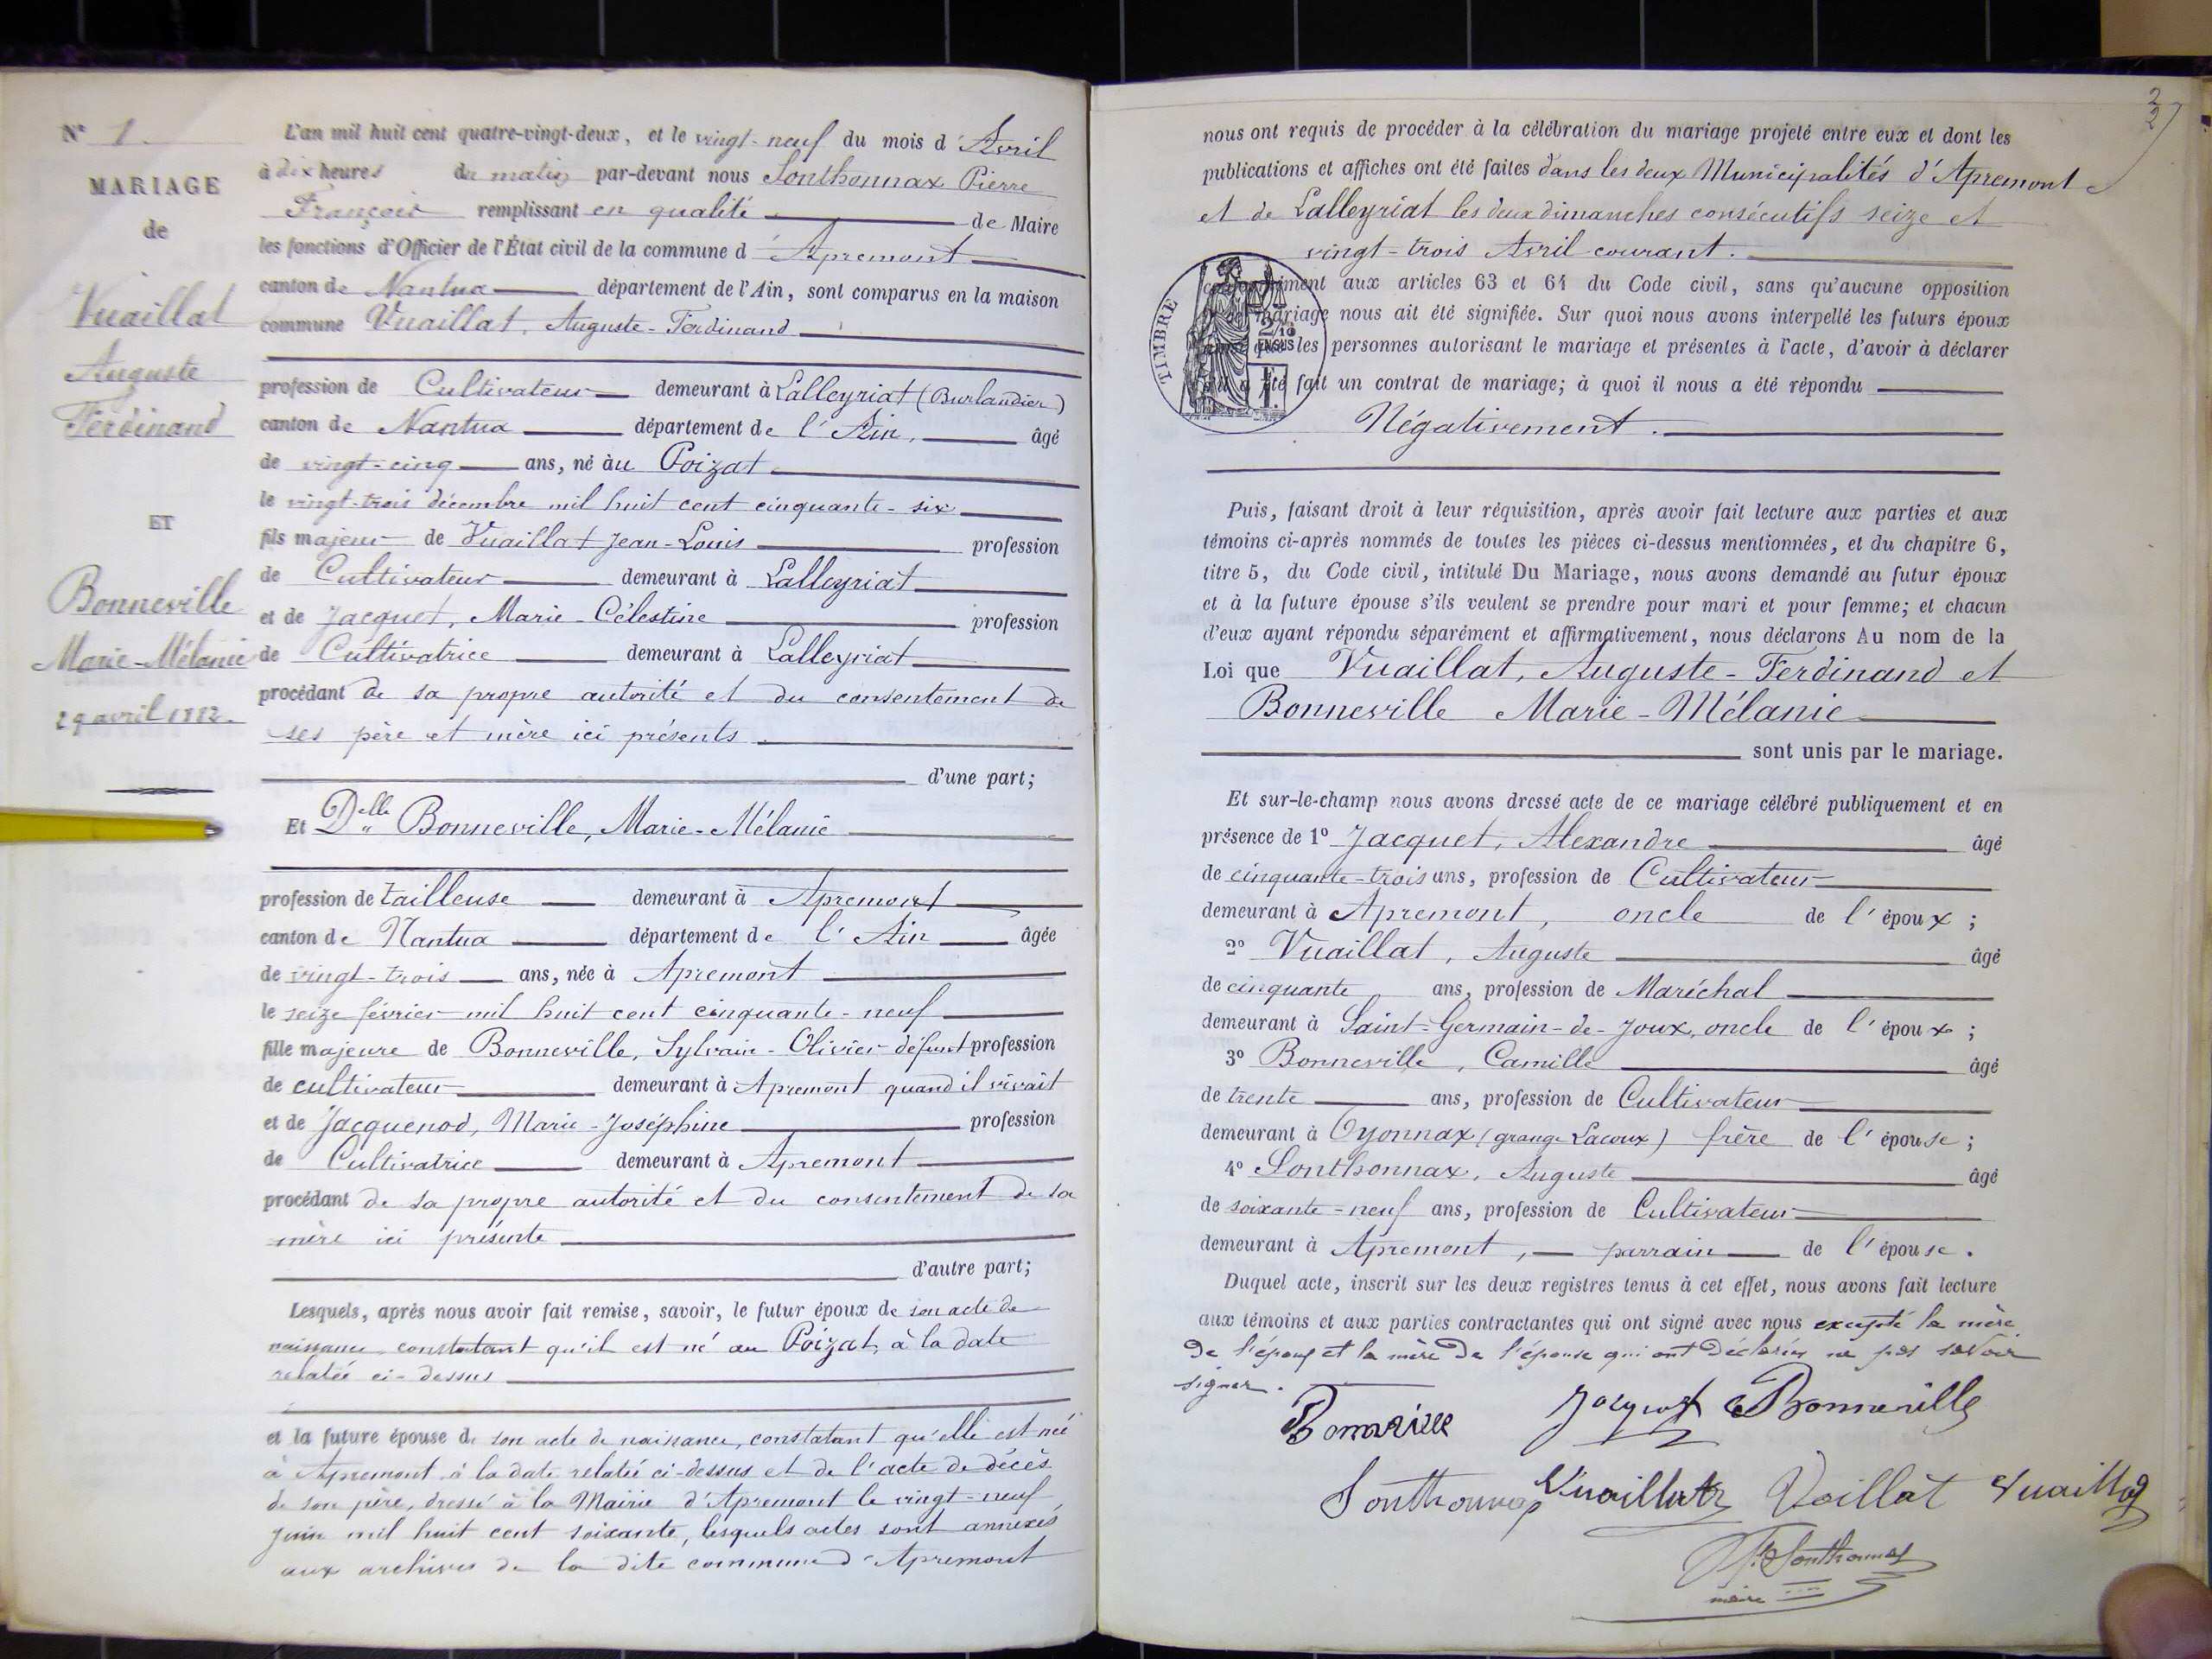 N° 1.
MARIAGE
de
Vuaillat
Auguste
Ferdinand
ET
Bonneville
Marie-Mélanie
29 avril 1882.
L'an mil huit cent quatre-vingt-deux, et le vingt-neuf du mois d'Avril
à dix heures du matin par-devant nous Sonthonnax Pierre
François remplissant en qualité de Maire
les fonctions d'Officier de l'État civil de la commune d'Apremont
canton de Nantua département de l'Ain, sont comparus en la maison
commune Vuaillat, Auguste-Ferdinand
profession de Cultivateur demeurant à Lalleyriat (Burlandier)
canton de Nantua département de l'Ain, âgé
de vingt-cinq ans, né àu Poizat
le vingt-trois décembre mil huit cent cinquante-six
fils majeur de Vuaillat Jean-Louis profession
de Cultivateur demeurant à Lalleyriat
et de Jacquet, Marie-Célestine profession
de Cultivatrice demeurant à Lalleyriat
procédant de sa propre autorité et du consentement de
ses père et mère ici présents
d'une part;
Et Delle Bonneville, Marie-Mélanie
profession de tailleuse demeurant à Apremont
canton de Nantua département de l'Ain âgée
de vingt-trois ans, née à Apremont
le seize février mil huit cent cinquante-neuf
fille majeure de Bonneville, Sylvain-Olivier défunt profession
de cultivateur demeurant à Apremont quand il vivait
et de Jacquenod, Marie-Joséphine profession
de Cultivatrice demeurant à Apremont
procédant de sa propre autorité et du consentement de sa
mère ici présente
d'autre part;
Lesquels, après nous avoir fait remise, savoir, le futur époux de son acte de
naissance, constatant qu'il est né au Poizat, à la date
relatée ci-dessus
et la future épouse de son acte de naissance, constatant qu'elle est née
à Apremont à la date relatée ci-dessus et de l'acte de décès
de son père, dressé à la Mairie d'Apremont le vingt-neuf
juin mil huit cent soixante, lesquels actes sont annexés
aux archives de la dite commune d'Apremont
2
2
nous ont requis de procéder à la célébration du mariage projeté entre eux et dont les
publications et affiches ont été faites dans les deux Municipalités d'Apremont
et de Lalleyriat les deux dimanches consécutifs seize et
vingt-trois Avril courant.
TIMBRE
conformément aux articles 63 et 64 du Code civil, sans qu'aucune opposition
mariage nous ait été signifiée. Sur quoi nous avons interpellé les futurs époux
ainsi que les personnes autorisant le mariage et présentes à l'acte, d'avoir à déclarer
s'il a été fait un contrat de mariage; à quoi il nous a été répondu
Négativement.
Puis, faisant droit à leur réquisition, après avoir fait lecture aux parties et aux
témoins ci-après nommés de toutes les pièces ci-dessus mentionnées, et du chapitre 6,
titre 5, du Code civil, intitulé Du Mariage, nous avons demandé au futur époux
et à la future épouse s'ils veulent se prendre pour mari et pour femme; et chacun
d'eux ayant répondu séparément et affirmativement, nous déclarons Au nom de la
Loi que Vuaillat, Auguste-Ferdinand et
Bonneville Marie-Mélanie
sont unis par le mariage.
Et sur-le-champ nous avons dressé acte de ce mariage célébré publiquement et en
présence de 1° Jacquet, Alexandre âgé
de cinquante-trois ans, profession de Cultivateur
demeurant à Apremont, oncle de l'époux;
2° Vuaillat, Auguste âgé
de cinquante ans, profession de Maréchal
demeurant à Saint-Germain-de-Joux, oncle de l'époux;
3° Bonneville, Camille âgé
de trente ans, profession de Cultivateur
demeurant à Oyonnax (grange Lacoux) frère de l'épouse;
4° Sonthonnax, Auguste âgé
de soixante-neuf ans, profession de Cultivateur
demeurant à Apremont, parrain de l'épouse.
Duquel acte, inscrit sur les deux registres tenus à cet effet, nous avons fait lecture
aux témoins et aux parties contractantes qui ont signé avec nous excepté la mère
de l'époux et la mère de l'épouse qui ont déclarées ne pas savoir
signer.
Bonneville Jacquet Bonneville
Sonthonnax Vuaillat Vuillat Vuaillat
Sonthonnax
maire